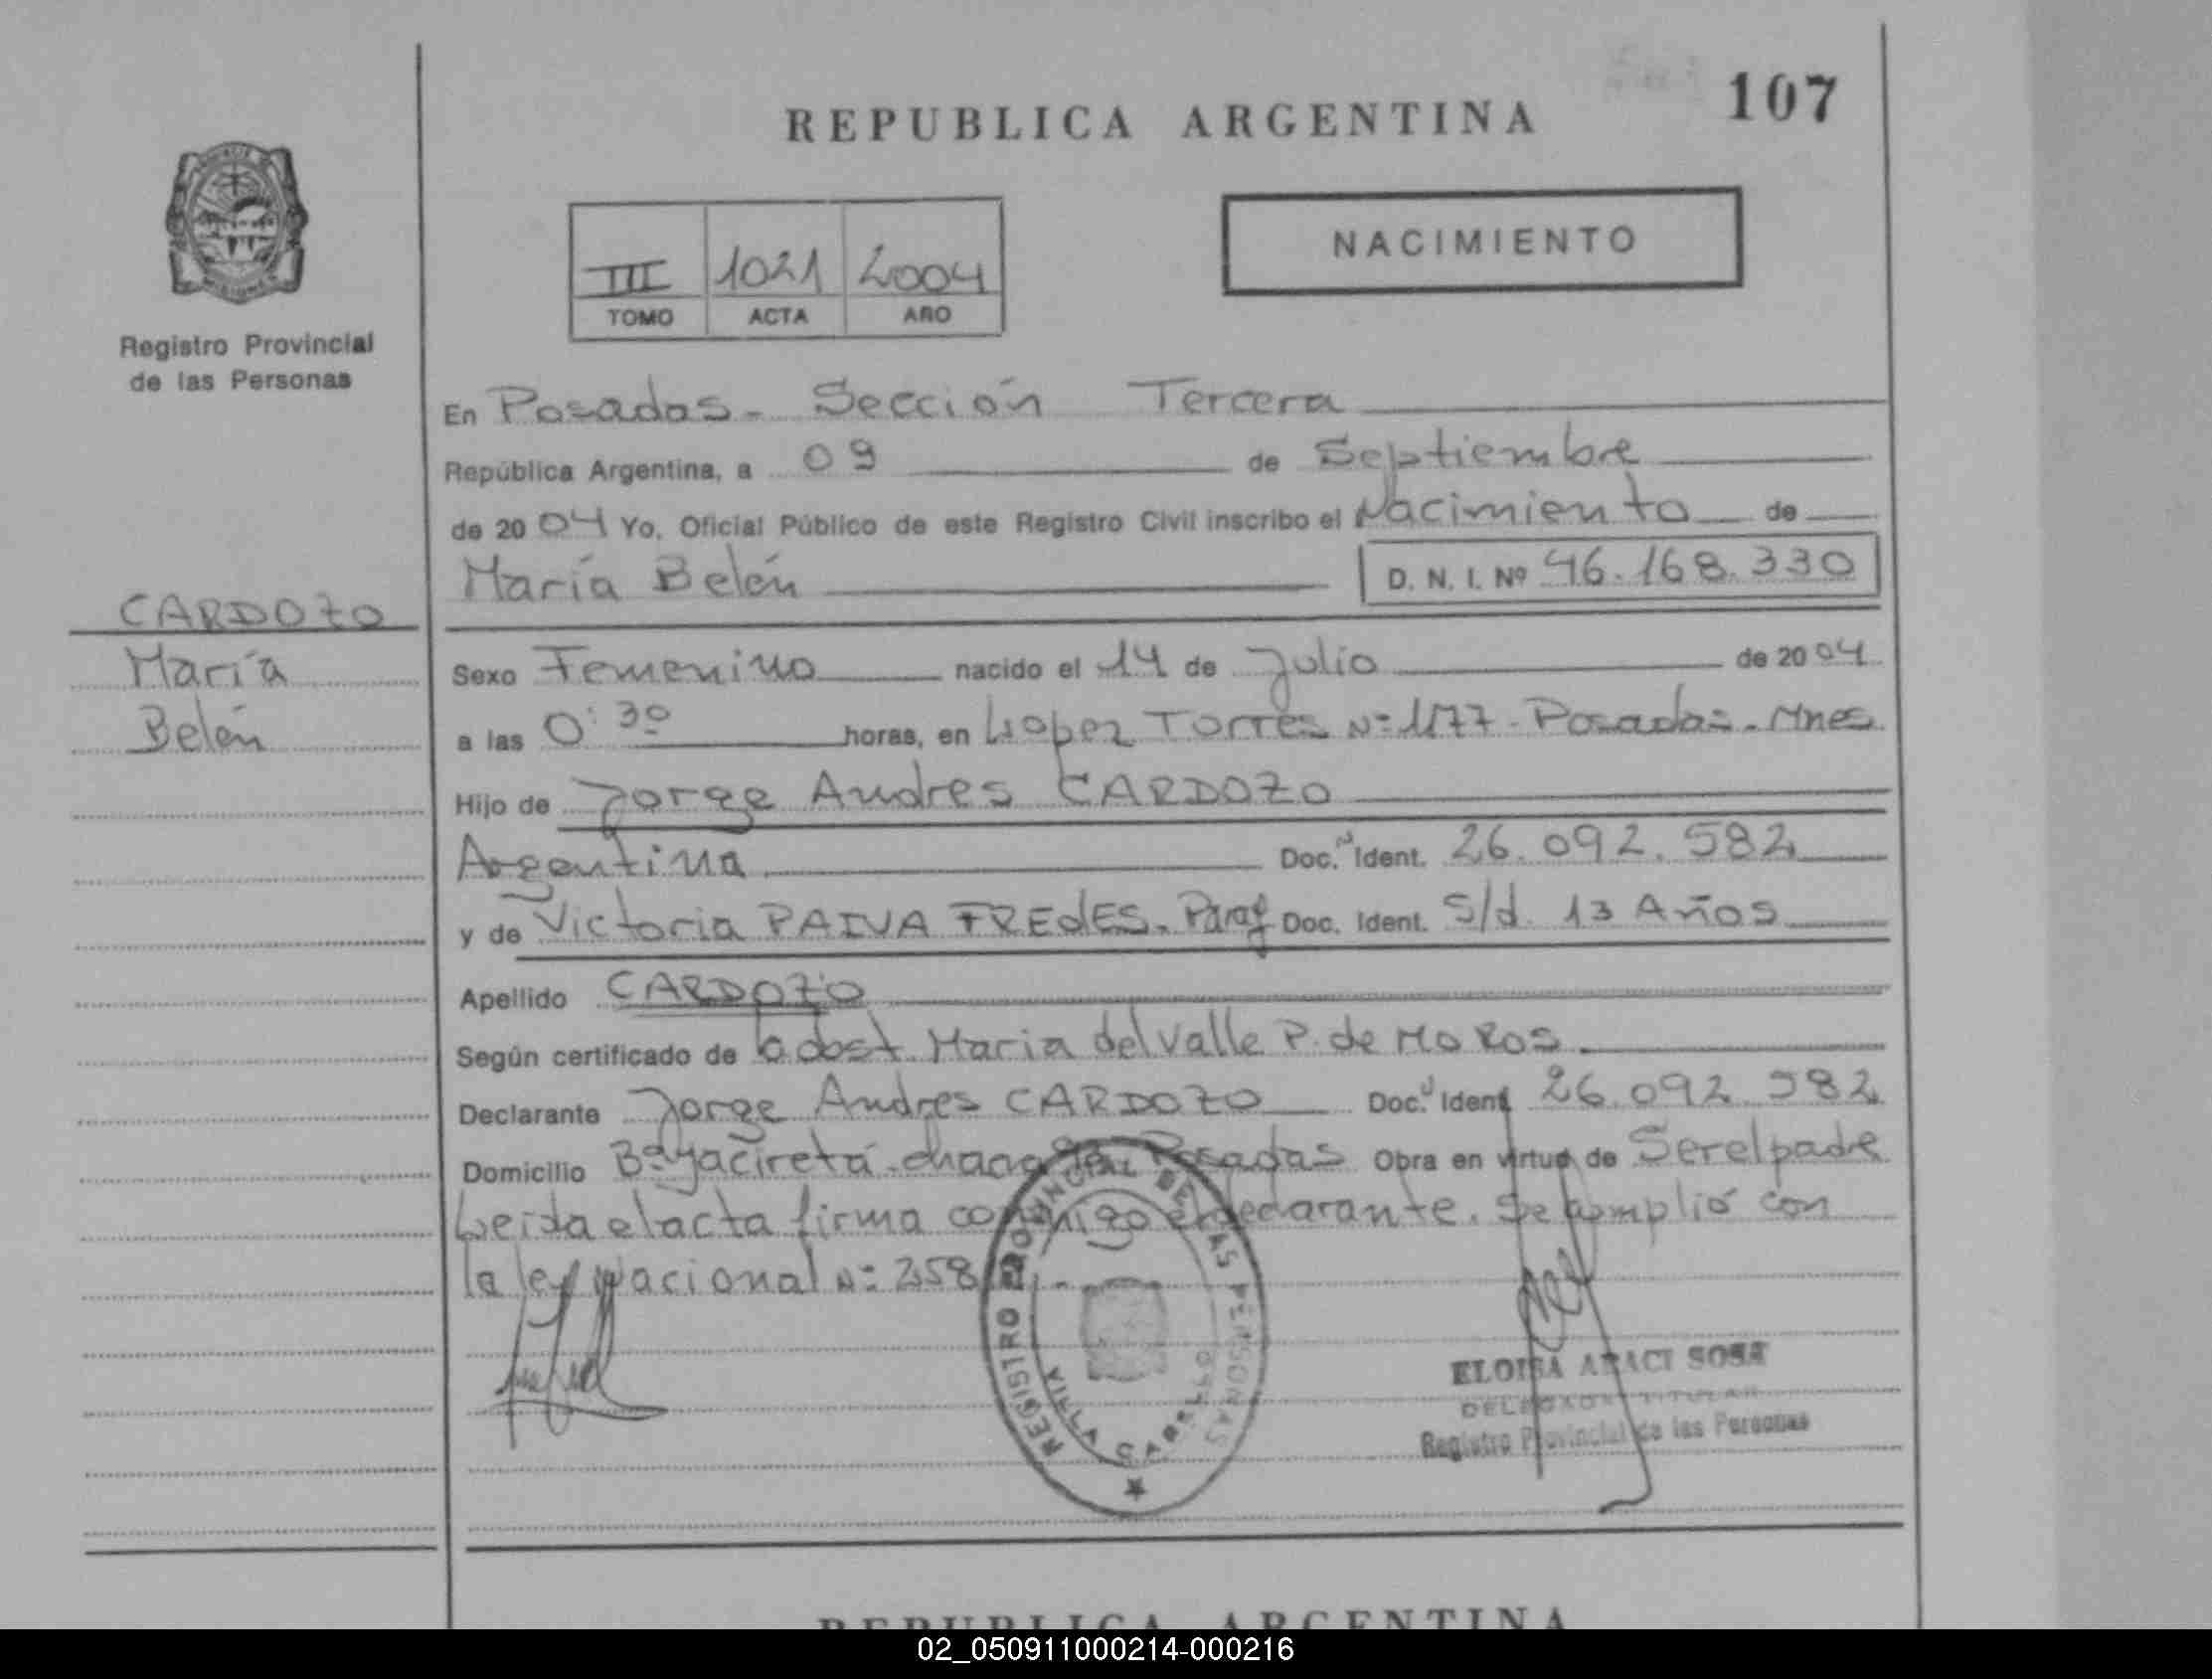 107
REPUBLICA ARGENTINA
NACIMIENTO
III 1021 2004
TOMO ACTA AÑO
Registro Provincial
de las Personas
CARDOZO
María
Belén
En Posadas - Sección Tercera
República Argentina, a 09 de Septiembre
de 2004 Yo, Oficial Público de este Registro Civil inscribo el Nacimiento de
María Belén D. N. I. Nº 46.168.330
Sexo Femenino nacido el 14 de Julio de 2004
a las 0:30 horas, en López Torres Nº 1177 - Posadas - Mnes.
Hijo de Jorge Andres CARDOZO
Argentina Doc. Ident. 26.092.582
y de Victoria PAIVA FREdES. Parag Doc. Ident. S/d. 13 Años
Apellido CARDOZO
Según certificado de obst. Maria del Valle P. de MOROS
Declarante Jorge Andres CARDOZO Doc. Ident 26.092.582
Domicilio Bº Yacireta - Posadas Obra en virtud de Ser el padre
Leida el acta firma conmigo el declarante. Se cumplió con
la ley Nacional Nº 258
REGISTRO PROVINCIAL DE LAS PERSONAS
VILLA CABELLO
ELOISA ARACI SOSA
DELEGADO TITULAR
Registro Provincial de las Personas
REPUBLICA ARGENTINA
02_050911000214-000216